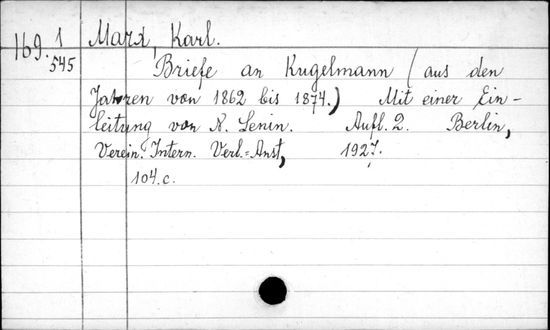 169.1 Marx, Karl.
545 Briefe an Kugelmann (aus den
Jahren von 1862 bis 1874.) Mit einer Ein-
leitung von N. Lenin. Aufl. 2. Berlin,
Verein. Intern. Verl.=Anst, 1927.
104.c.